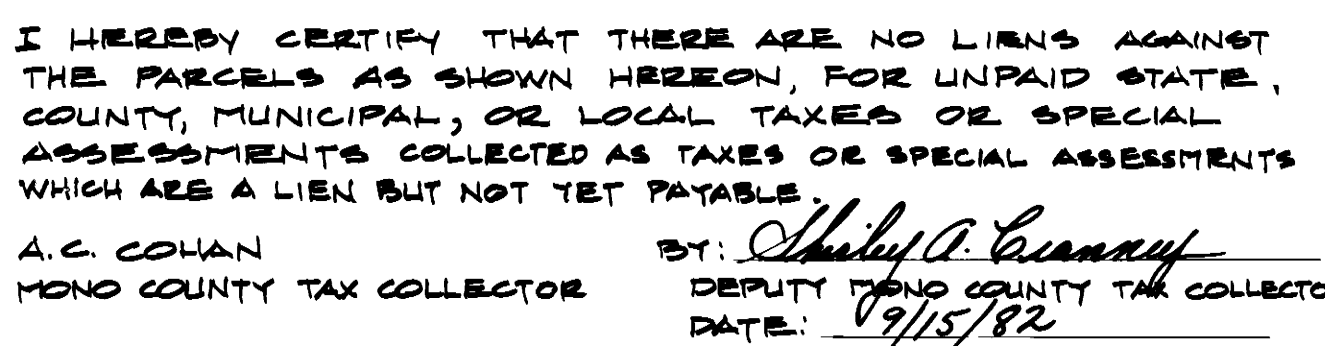 I HEREBY CERTIFY THAT THERE ARE NO LIENS AGAINST
THE PARCELS AS SHOWN HEREON, FOR UNPAID STATE,
COUNTY, MUNICIPAL, OR LOCAL TAXES OR SPECIAL
ASSESSMENTS COLLECTED AS TAXES OR SPECIAL ASSESSMENTS
WHICH ARE A LIEN BUT NOT YET PAYABLE.
A.C. COHAN BY: Shirley A.
MONO COUNTY TAX COLLECTOR DEPUTY MONO COUNTY TAX COLLECTO
DATE: 9/15/82